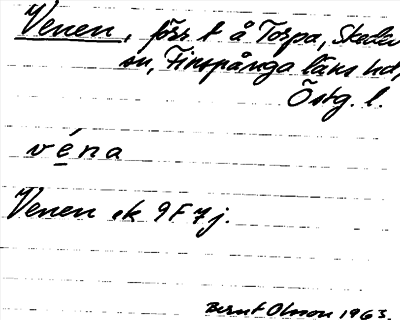 Venen, förr t å Torpa, Skedevi
sn, Finspånga läns hd,
Östg. l.
véna
Venen ek 9F7j.
Bernt Olsson 1963.